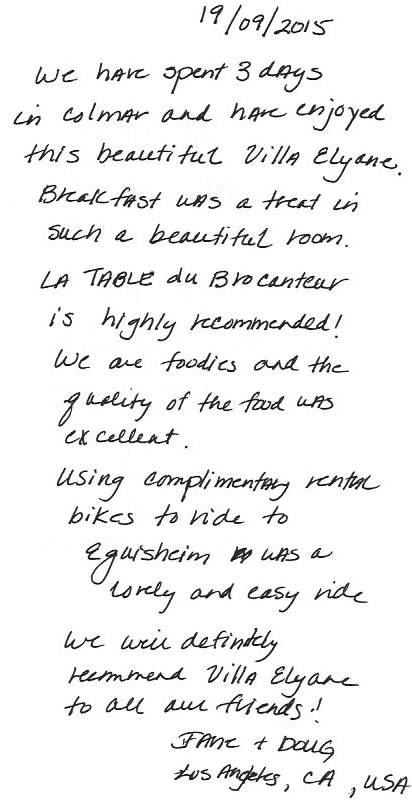 19/09/2015
We have spent 3 days
in Colmar and have enjoyed
this beautiful Villa Elyane.
Breakfast was a treat in
such a beautiful room.
LA TABLE du Brocanteur
is highly recommended!
We are foodies and the
quality of the food was
excellent.
Using complimentary rental
bikes to ride to
Eguisheim was a
lovely and easy ride
We will definitely
recommend Villa Elyane
to all our friends!
Jane + Doug
Los Angeles, CA, USA